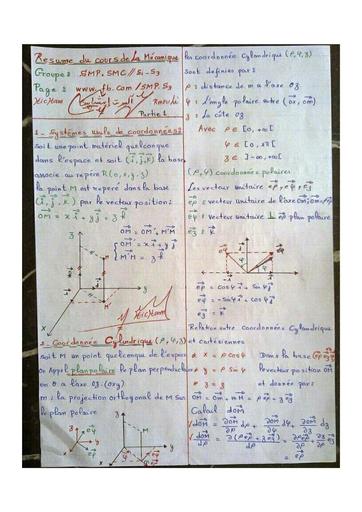 Resume du cours de la Mécanique
Groupe : SMP. SMC // S1 - S3
Page : www.fb.com/SMP.S3
Hicham
Partie 1
1 - Systèmes usile de coordonnées :
Soit un point matériel quelconque
dans l'espace et soit (i, j, k) la base
associe au repére R(o, x, y, z)
la point M est reperé dans la base
(i, j, k) par le vecteur position :
OM = x i + y j + z k
OM = OM' + M'M
OM' = x i + y j
M'M = z k
Hicham
2 - Coordonnée Cylindrique (ρ, φ, z)
soit M un point quelconque de l'espace
on Appel plan polaire le plan perpendiculaire
en O a l'axe oz : (oxy)
m : la projection orthogonal de M sur
le plan polaire
les coordonnée Cylindrique (ρ, φ, z)
sont definies par :
ρ : distance de m a l'axe oz
φ : L'angle polaire entre (ox, om)
z : La côte oz
Avec ρ ∈ [0, +∞[
φ ∈ [0, 2π[
z ∈ ]-∞, +∞[
(ρ, φ) coordonnées polaires
Les vecteur unitaire eρ, eφ, ez
eρ : vecteur unitaire de l'axe
eφ : vecteur unitaire ⊥ eρ plan polaire
ez : k
eρ = cos φ i + sin φ j
eφ = -sin φ i + cos φ j
ez = k
Relation entre Coordonnées Cylindrique
et cartésiennes
x = ρ cos φ
y = ρ sin φ
z = z
Dans la base
le vecteur position OM
et donnée par :
OM = Om + mM = ρ eρ + z ez
Calcul dOM